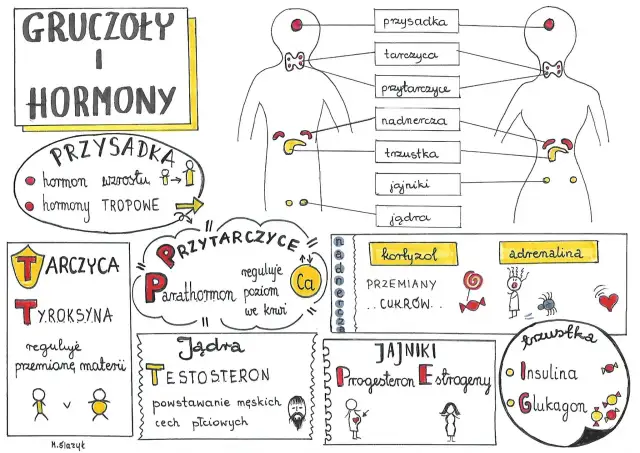 GRUCZOŁY
I
HORMONY
przysadka
tarczyca
przytarczyce
nadnercza
trzustka
jajniki
jądra
PRZYSADKA
hormon wzrostu
hormony TROPOWE
TARCZYCA
TYROKSYNA
reguluje
przemianę materii
v
PRZYTARCZYCE
Parathormon
reguluje
poziom
we krwi
Ca
nadnercza
kortyzol
PRZEMIANY
..CUKRÓW..
adrenalina
Jądra
TESTOSTERON
powstawanie męskich
cech płciowych
JAJNIKI
Progesteron Estrogeny
trzustka
Insulina
Glukagon